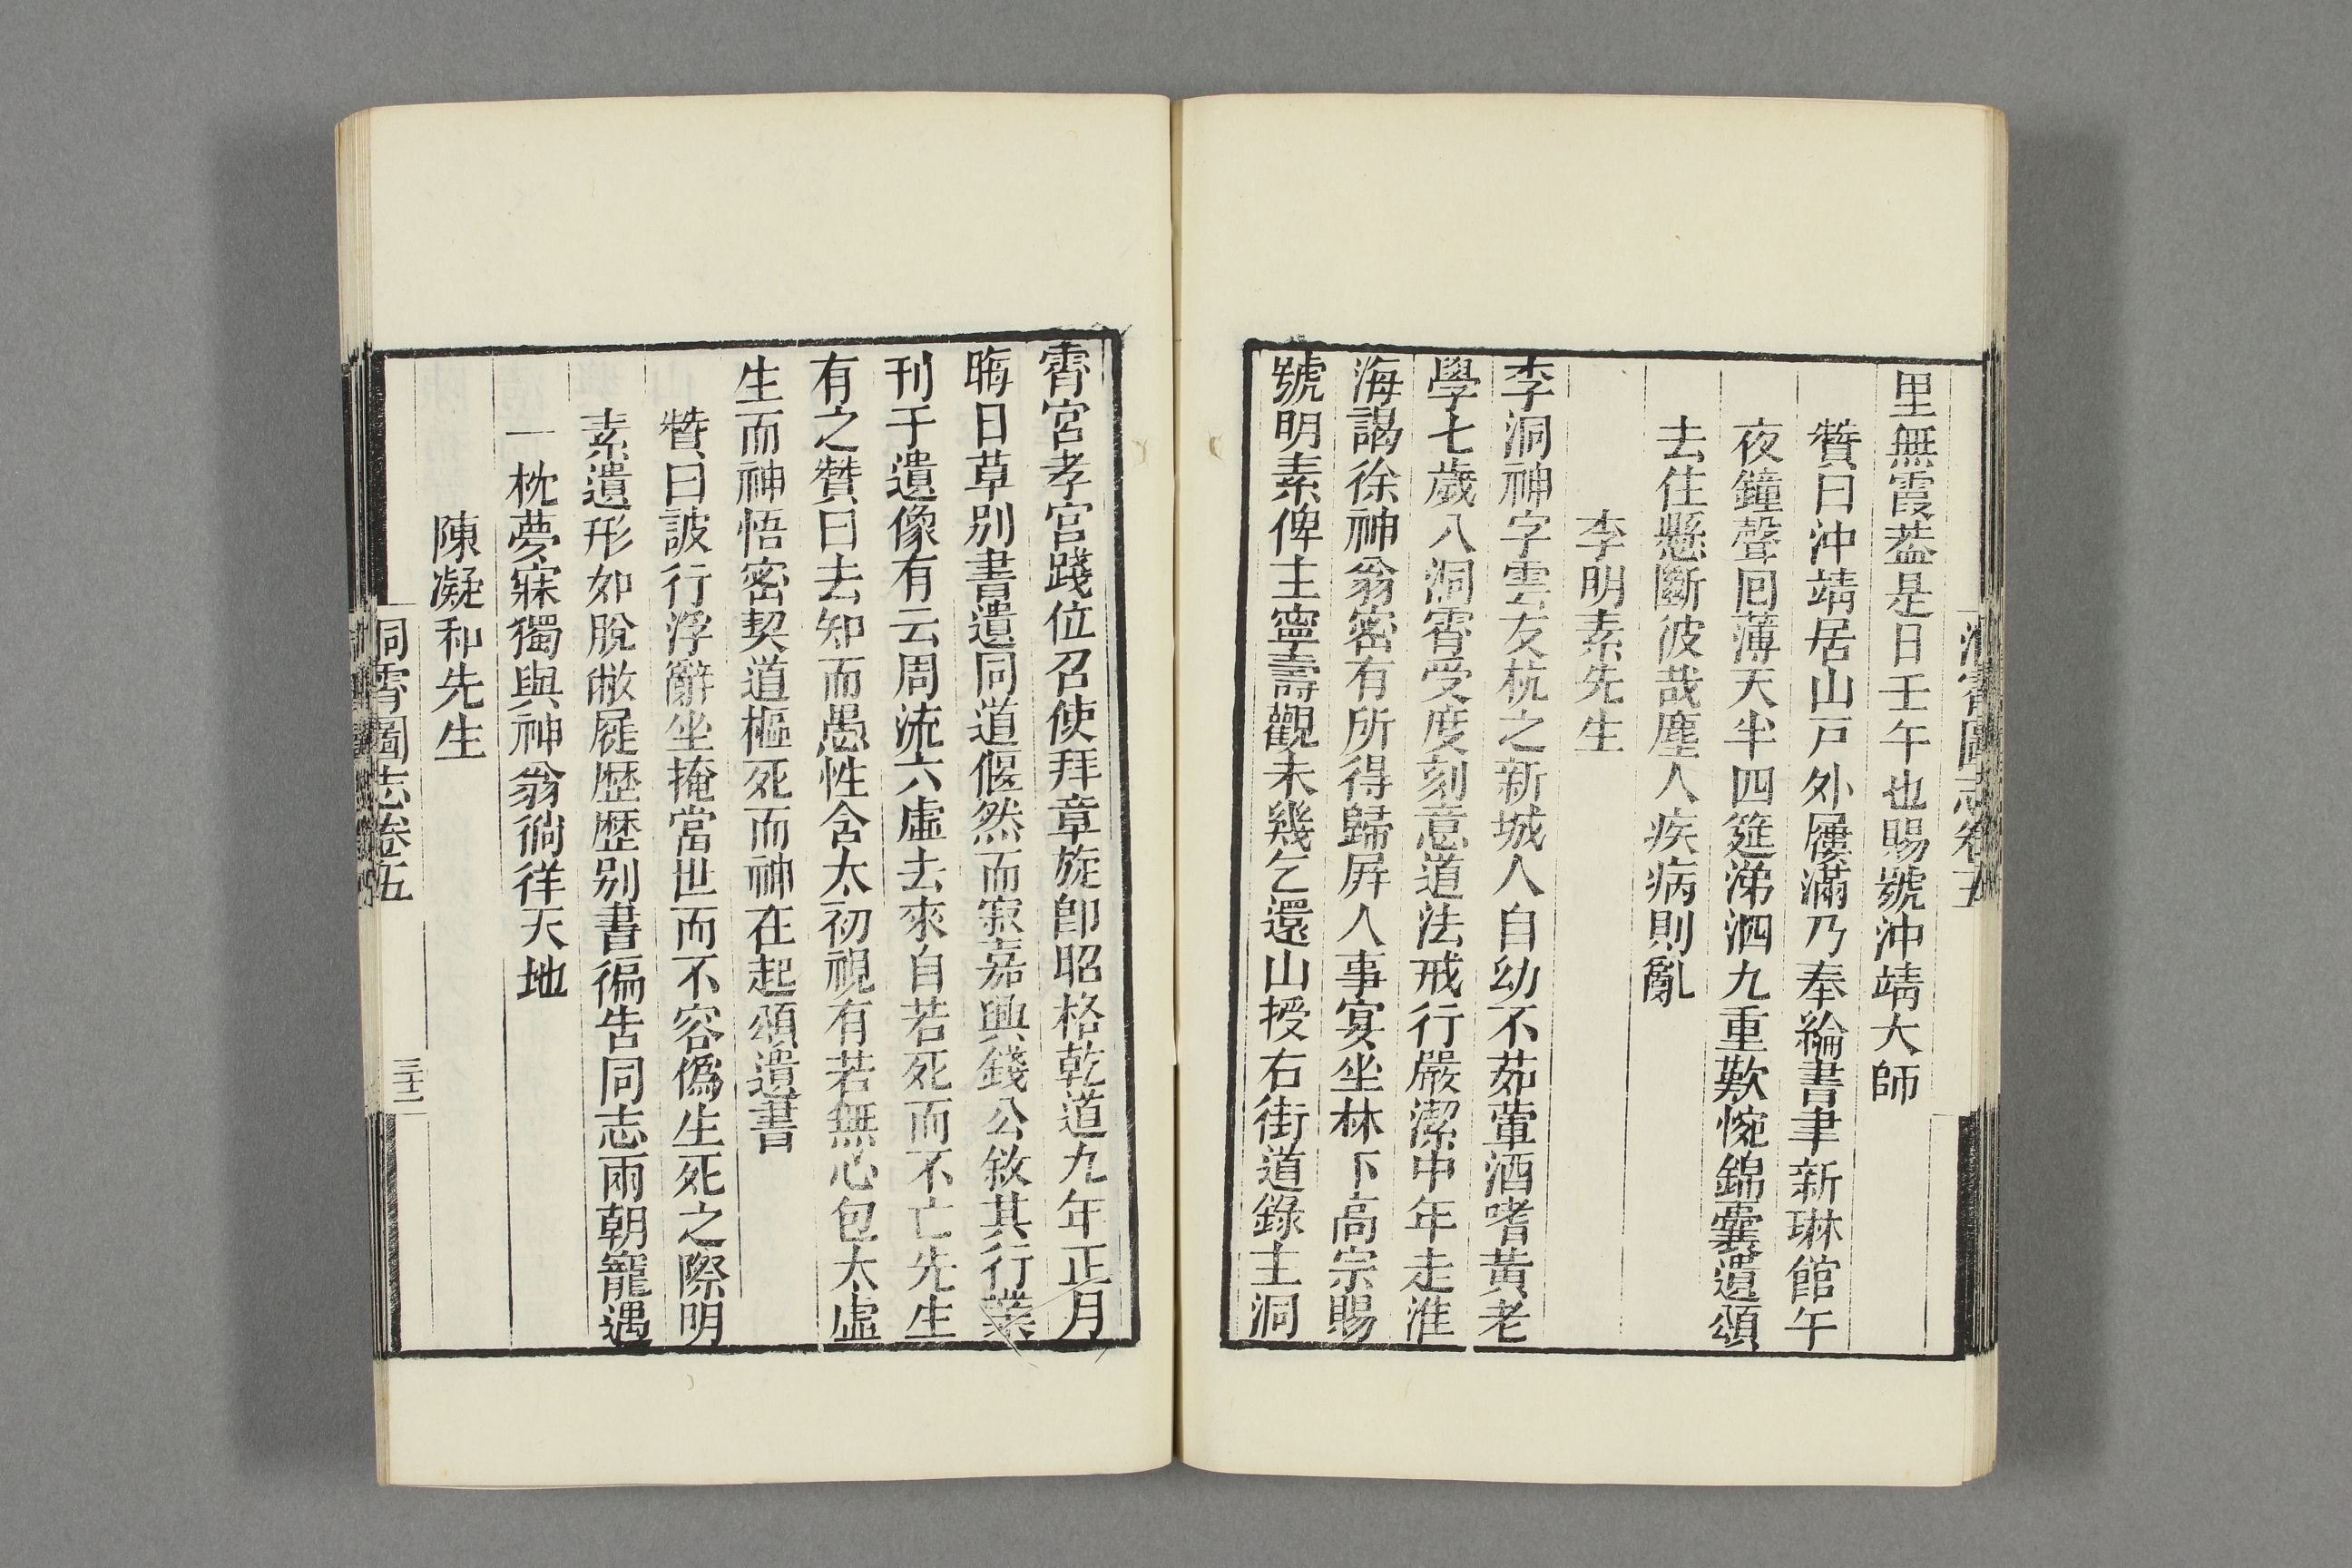 洞霄圖志卷五
里無霞葢是日壬午也賜號沖靖大師
贊曰沖靖居山戸外屨滿乃奉綸書聿新琳館午
夜鐘聲囘薄天半四筵涕泗九重歎惋錦囊遺頌
去住懸斷彼哉塵人疾病則亂
李明素先生
李洞神字雲友杭之新城人自幼不茹葷酒嗜黃老
學七歲入洞霄受度刻意道法戒行嚴潔中年走淮
海謁徐神翁密有所得歸屏人事宴坐林下高宗賜
號明素俾主寧壽觀未幾乞還山授右街道錄主洞
霄宮孝宗踐位召使拜章旋卽昭格乾道九年正月
晦日草別書遺同道偃然而寂嘉興錢公敘其行業
刊于遺像有云周流六虛去來自若死而不亡先生
有之贊曰去知而愚性含太初視有若無心包太虛
生而神悟密契道樞死而神在起頌遺書
贊曰詖行浮辭坐掩當世而不容僞生死之際明
素遺形如脫敝屣歴歴别書徧吿同志兩朝寵遇
一枕夢寐獨與神翁徜徉天地
陳凝和先生
洞霄圖志卷五
三十二